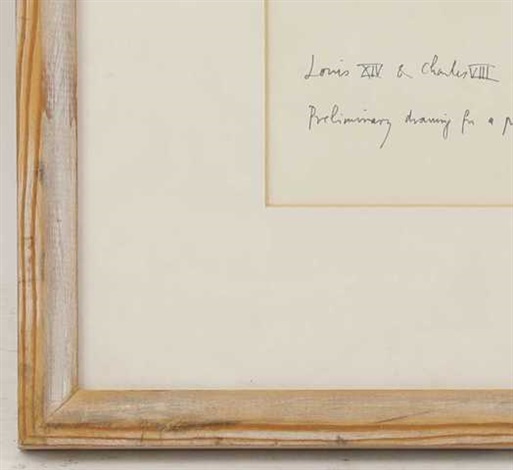 Louis XIV on Charles VIII
Preliminary drawing for a p